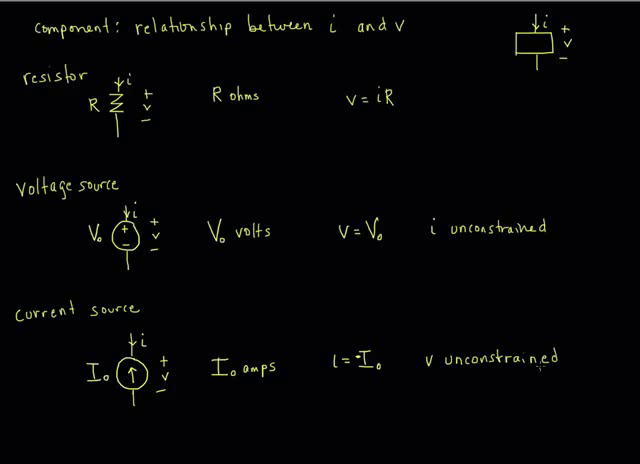 component: relationship between i and v
i
+
v
−
resistor
i
R
+
v
−
R ohms
v = iR
Voltage source
i
V₀
+
−
+
v
−
V₀ volts
v = V₀
i unconstrained
Current source
i
I₀
+
v
−
I₀ amps
i = -I₀
v unconstrained